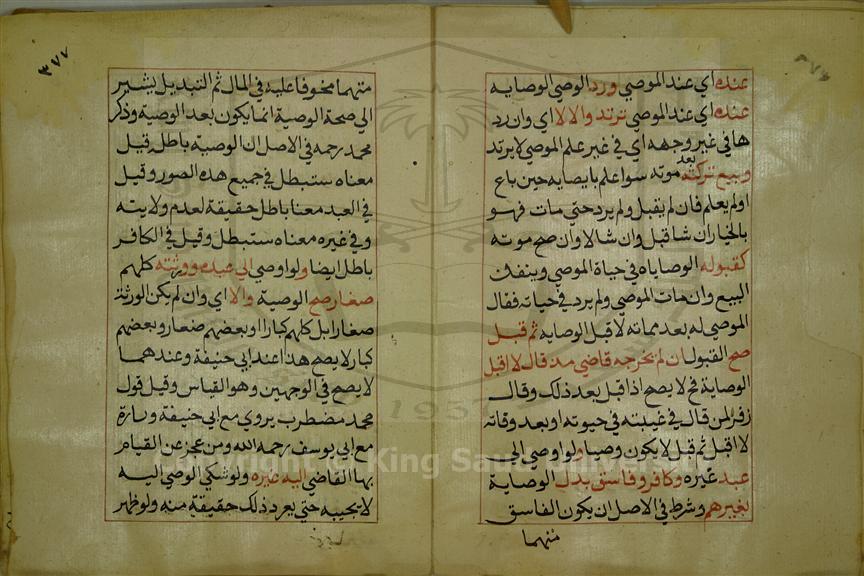 عنده اي عند الموصي ورد الوصي الوصايه
عنده اي عند الموصي ترتد والا لا اي وان رد
ها في غير وجهه اي في غير علم الموصي لا يرتد
وبيع تركته بعد موته سوا علم بايصايه حين باع
اولم يعلم فان لم يقبل ولم يرد حتي مات فهو
بالخيار ان شا قبل وان شا لا وان صح موته
كقبوله الوصاياه في حياة الموصي وينفذ
البيع وان مات الموصي ولم يرد في حياته فقال
الموصي له بعد مماته لا اقبل الوصايه ثم قبل
صح القبول ان لم يخرجه قاضي مذ قال لا اقبل
الوصاية فح لا يصح اذا قبل بعد ذلك وقال
زفر لمن قال في غيبته في حيوته او بعد وفاته
لا اقبل ثم قبل لا يكون وصيا ولو اوصي الي
عبد غيره وكافر وفاسق بدل الوصاية
بغيرهم وشرط في الاصل ان يكون الفاسق
متهما
٣٧٧
متهما مخوفا عليه في المال ثم التبديل يشير
الي صحة الوصية انما يكون بعد الوصية وذكر
محمد رحمه في الاصل ان الوصية باطله قيل
معناه ستبطل في جميع هذه الصور وقيل
في العبد معنا باطل حقيقة لعدم ولايته
وفي غيره معناه ستبطل وقيل في الكافر
باطل ايضا ولو اوصي الي عبده وورثته كلهم
صغار صح الوصية والا اي وان لم يكن الورثة
صغارا بل كلهم كبارا او بعضهم صغار وبعضهم
كبار لا يصح هذا عند ابي حنيفة وعندهما
لا يصح في الوجهين وهو القياس وقيل قول
محمد مضطرب يروي مع ابي حنيفة وتارة
مع ابي يوسف رحمه الله ومن عجز عن القيام
بها القاضي اليه غيره ولو شكي الوصي اليه
لا يجيبه حتي يعرد ذلك حقيقة منه ولو ظهر
King Saud
1957